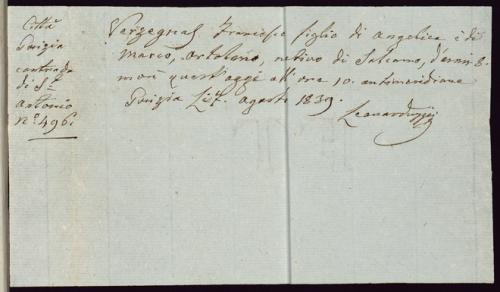 Città
Gorizia
contrada
di St.
Antonio
n.° 496.
Verzegnas Francesco figlio di Angelica e di
Marco, ortolano, nativo di Salcano, d'anni 8.
morì quest'oggi all'ore 10. antimeridiane
Gorizia Li agosto 1839.